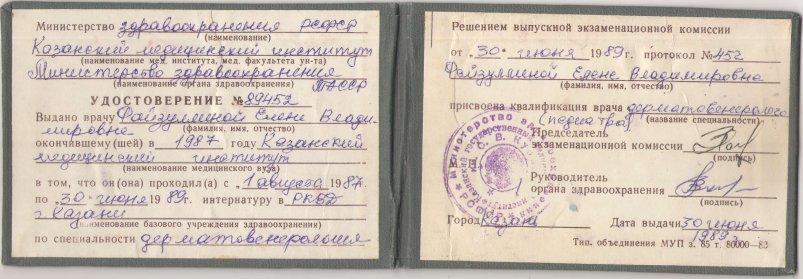 Министерство здравоохранения РСФСР
(наименование)
Казанский медицинский институт
(наименование мед. института, мед. факультета ун-та)
Министерство здравоохранения
(наименование органа здравоохранения)
ТАССР
УДОСТОВЕРЕНИЕ № 89452
Выдано врачу Файзуллиной Елене Влади-
мировне
(фамилия, имя, отчество)
окончившему(шей) в 1987 году Казанский
медицинский институт
(наименование медицинского вуза)
в том, что он(она) проходил(а) с 1 августа 1987
по 30 июня 1989 г. интернатуру в РКВД
г. Казани
(наименование базового учреждения здравоохранения)
по специальности дерматовенерология
Решением выпускной экзаменационной комиссии
от 30 июня 1989 г. протокол № 452
Файзуллиной Елене Владимировне
(фамилия, имя, отчество)
присвоена квалификация врача дерматовенеролога
(название специальности)
(педиатра)
Председатель
экзаменационной комиссии
(подпись)
М. П.
Руководитель
органа здравоохранения
(подпись)
Город Казань Дата выдачи 30 июня
1989 г.
Тип. объединения МУП з. 85 т. 80000—83